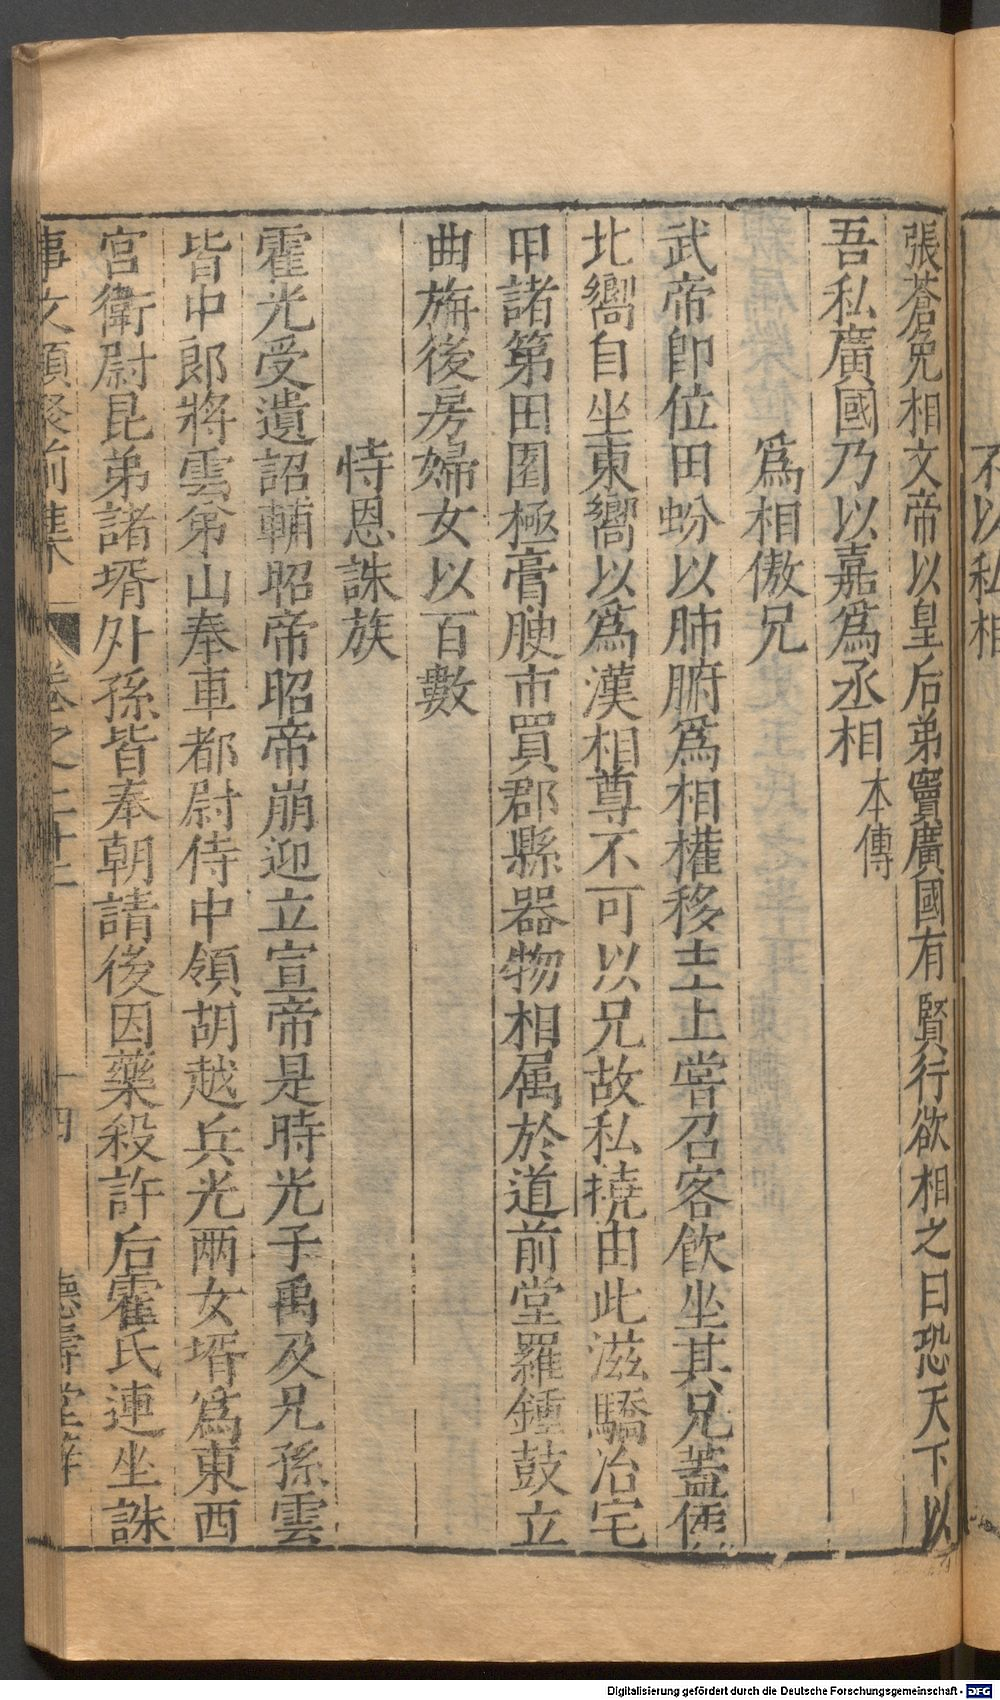 不以私相
張蒼免相文帝以皇后弟竇廣國有賢行欲相之曰恐天下以
吾私廣國乃以嘉爲丞相本傳
爲相傲兄
武帝卽位田蚡以肺腑爲相權移主上嘗召客飲坐其兄蓋侯
北嚮自坐東嚮以爲漢相尊不可以兄故私撓由此滋驕治宅
甲諸第田園極膏腴市買郡縣器物相属於道前堂羅鍾鼓立
曲旃後房婦女以百數
恃恩誅族
霍光受遺詔輔昭帝昭帝崩迎立宣帝是時光子禹及兄孫雲
皆中郎將雲弟山奉車都尉侍中領胡越兵光兩女壻爲東西
宮衛尉昆弟諸壻外孫皆奉朝請後因藥殺許后霍氏連坐誅
事文類聚前集 卷之二十 十四 德壽堂梓
Digitalisierung gefördert durch die Deutsche Forschungsgemeinschaft - DFG